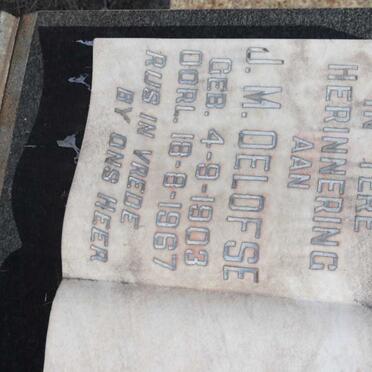 IN TERE
HERINNERING
AAN
J. M. OELOFSE
GEB. 4-8-1903
OORL. 18-8-1967
RUS IN VREDE
BY ONS HEER